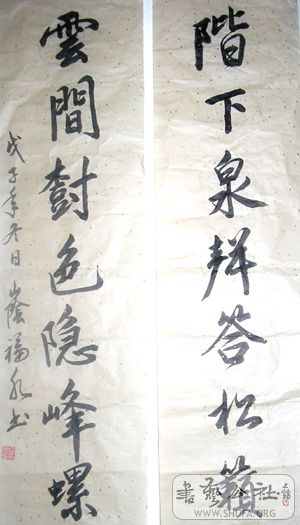 階下泉聲答松籟
雲間樹色隐峰螺
戊子年冬日福永书
書藝公社
WWW.SHUFA.ORG